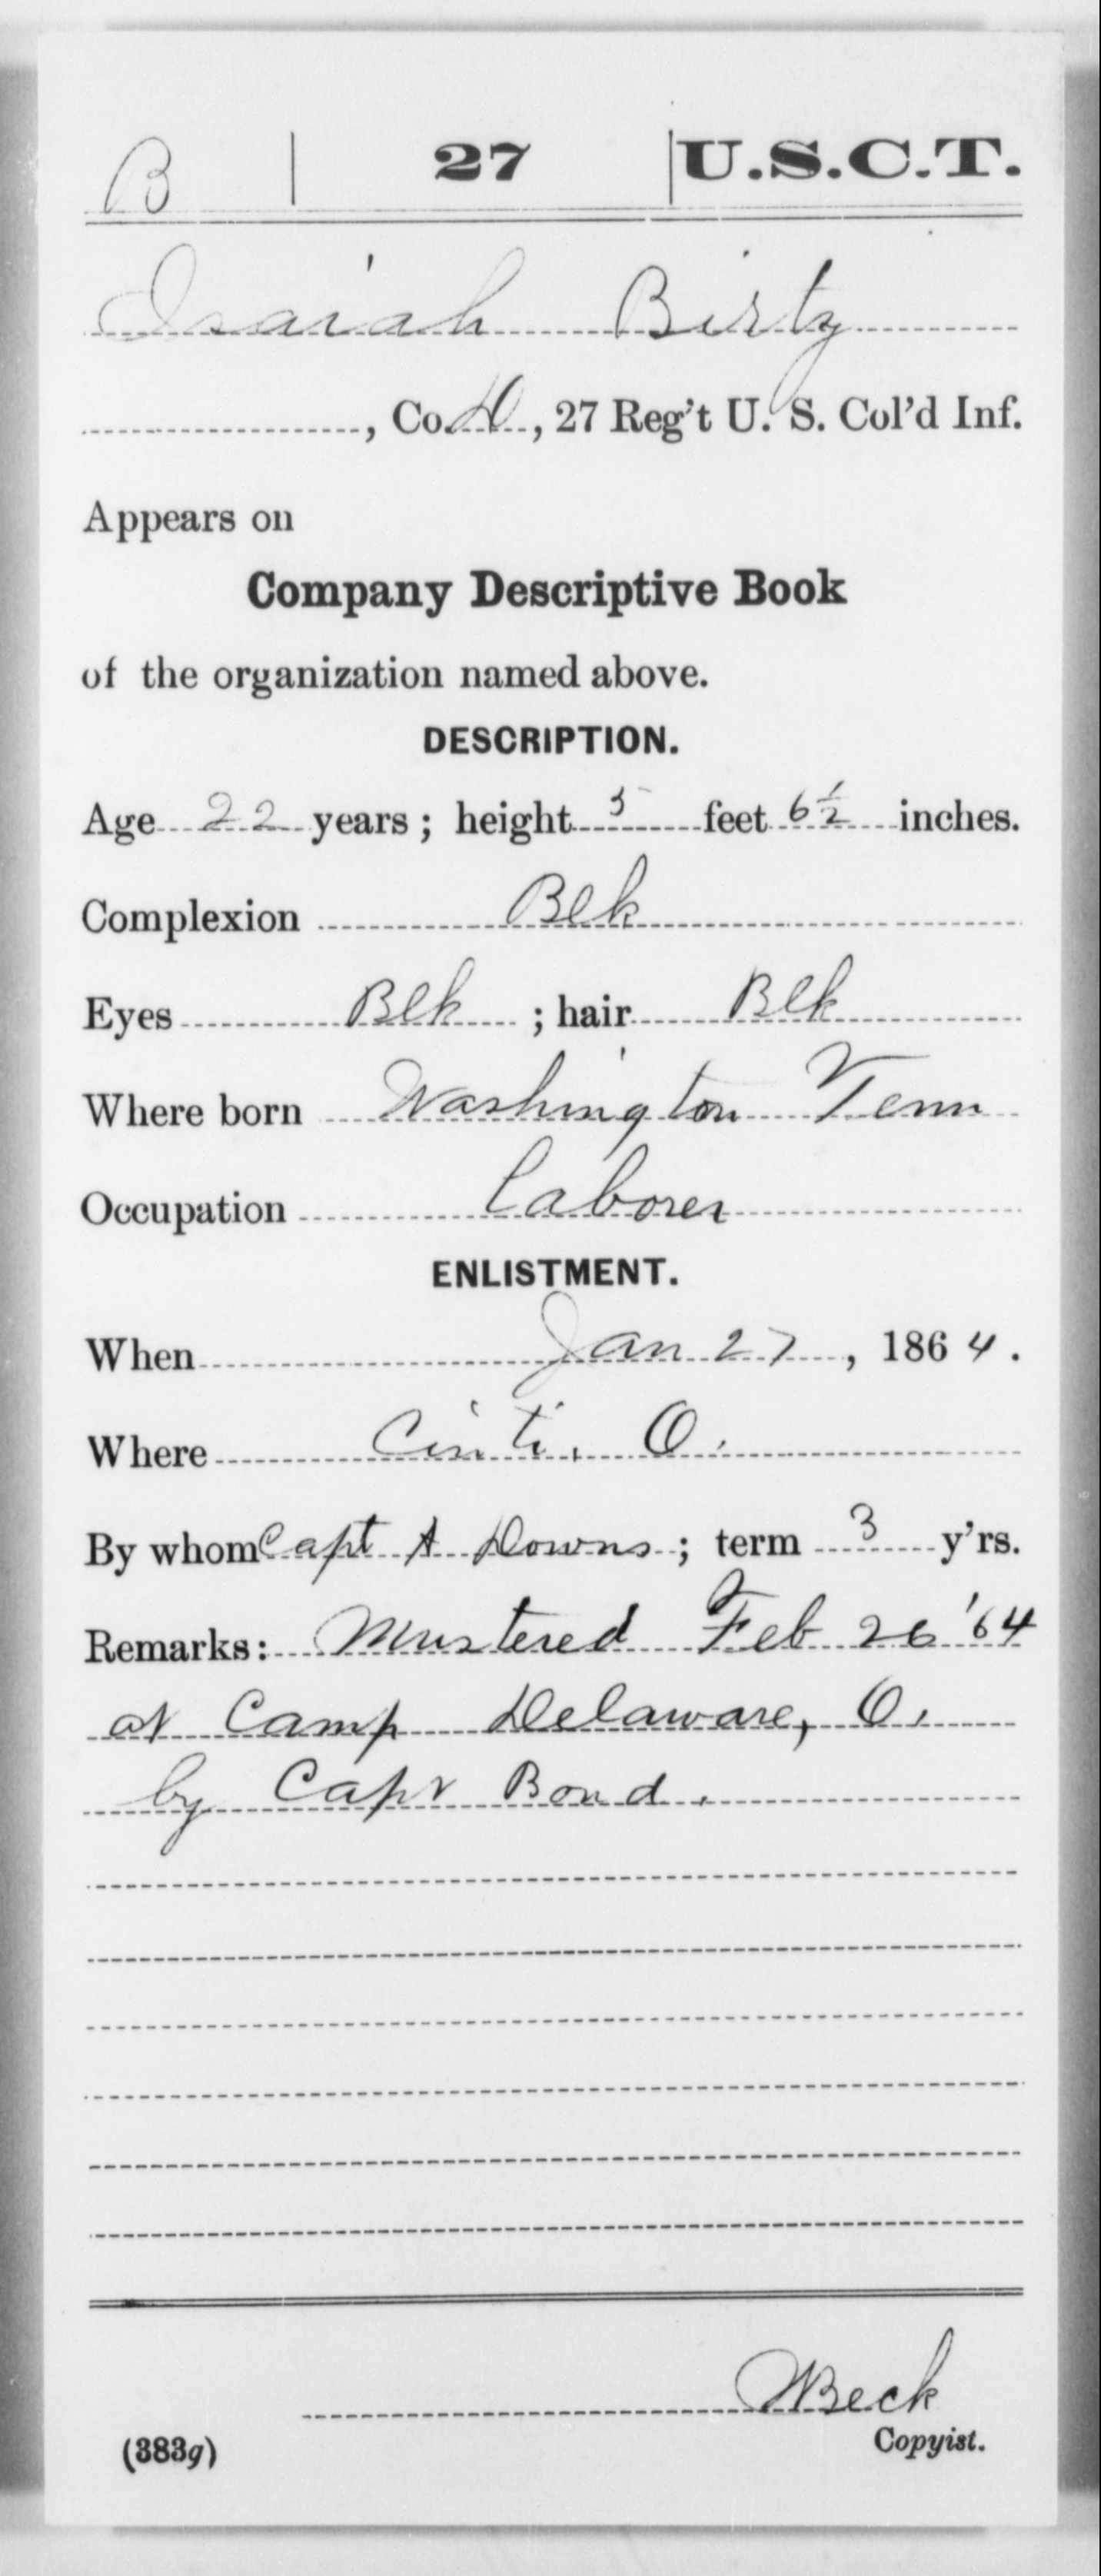 B 27 U.S.C.T.
Isaiah Birty
, Co. D, 27 Reg't U. S. Col'd Inf.
Appears on
Company Descriptive Book
of the organization named above.
DESCRIPTION.
Age 22 years; height 5 feet 6½ inches.
Complexion Blk
Eyes Blk; hair Blk
Where born Washington Tenn
Occupation Laborer
ENLISTMENT.
When Jan 27, 1864.
Where Cinti, O.
By whom Capt A Downs; term 3 y'rs.
Remarks: Mustered Feb 26 '64
at Camp Delaware, O.
by Capt Bond.
Beck
(383g) Copyist.